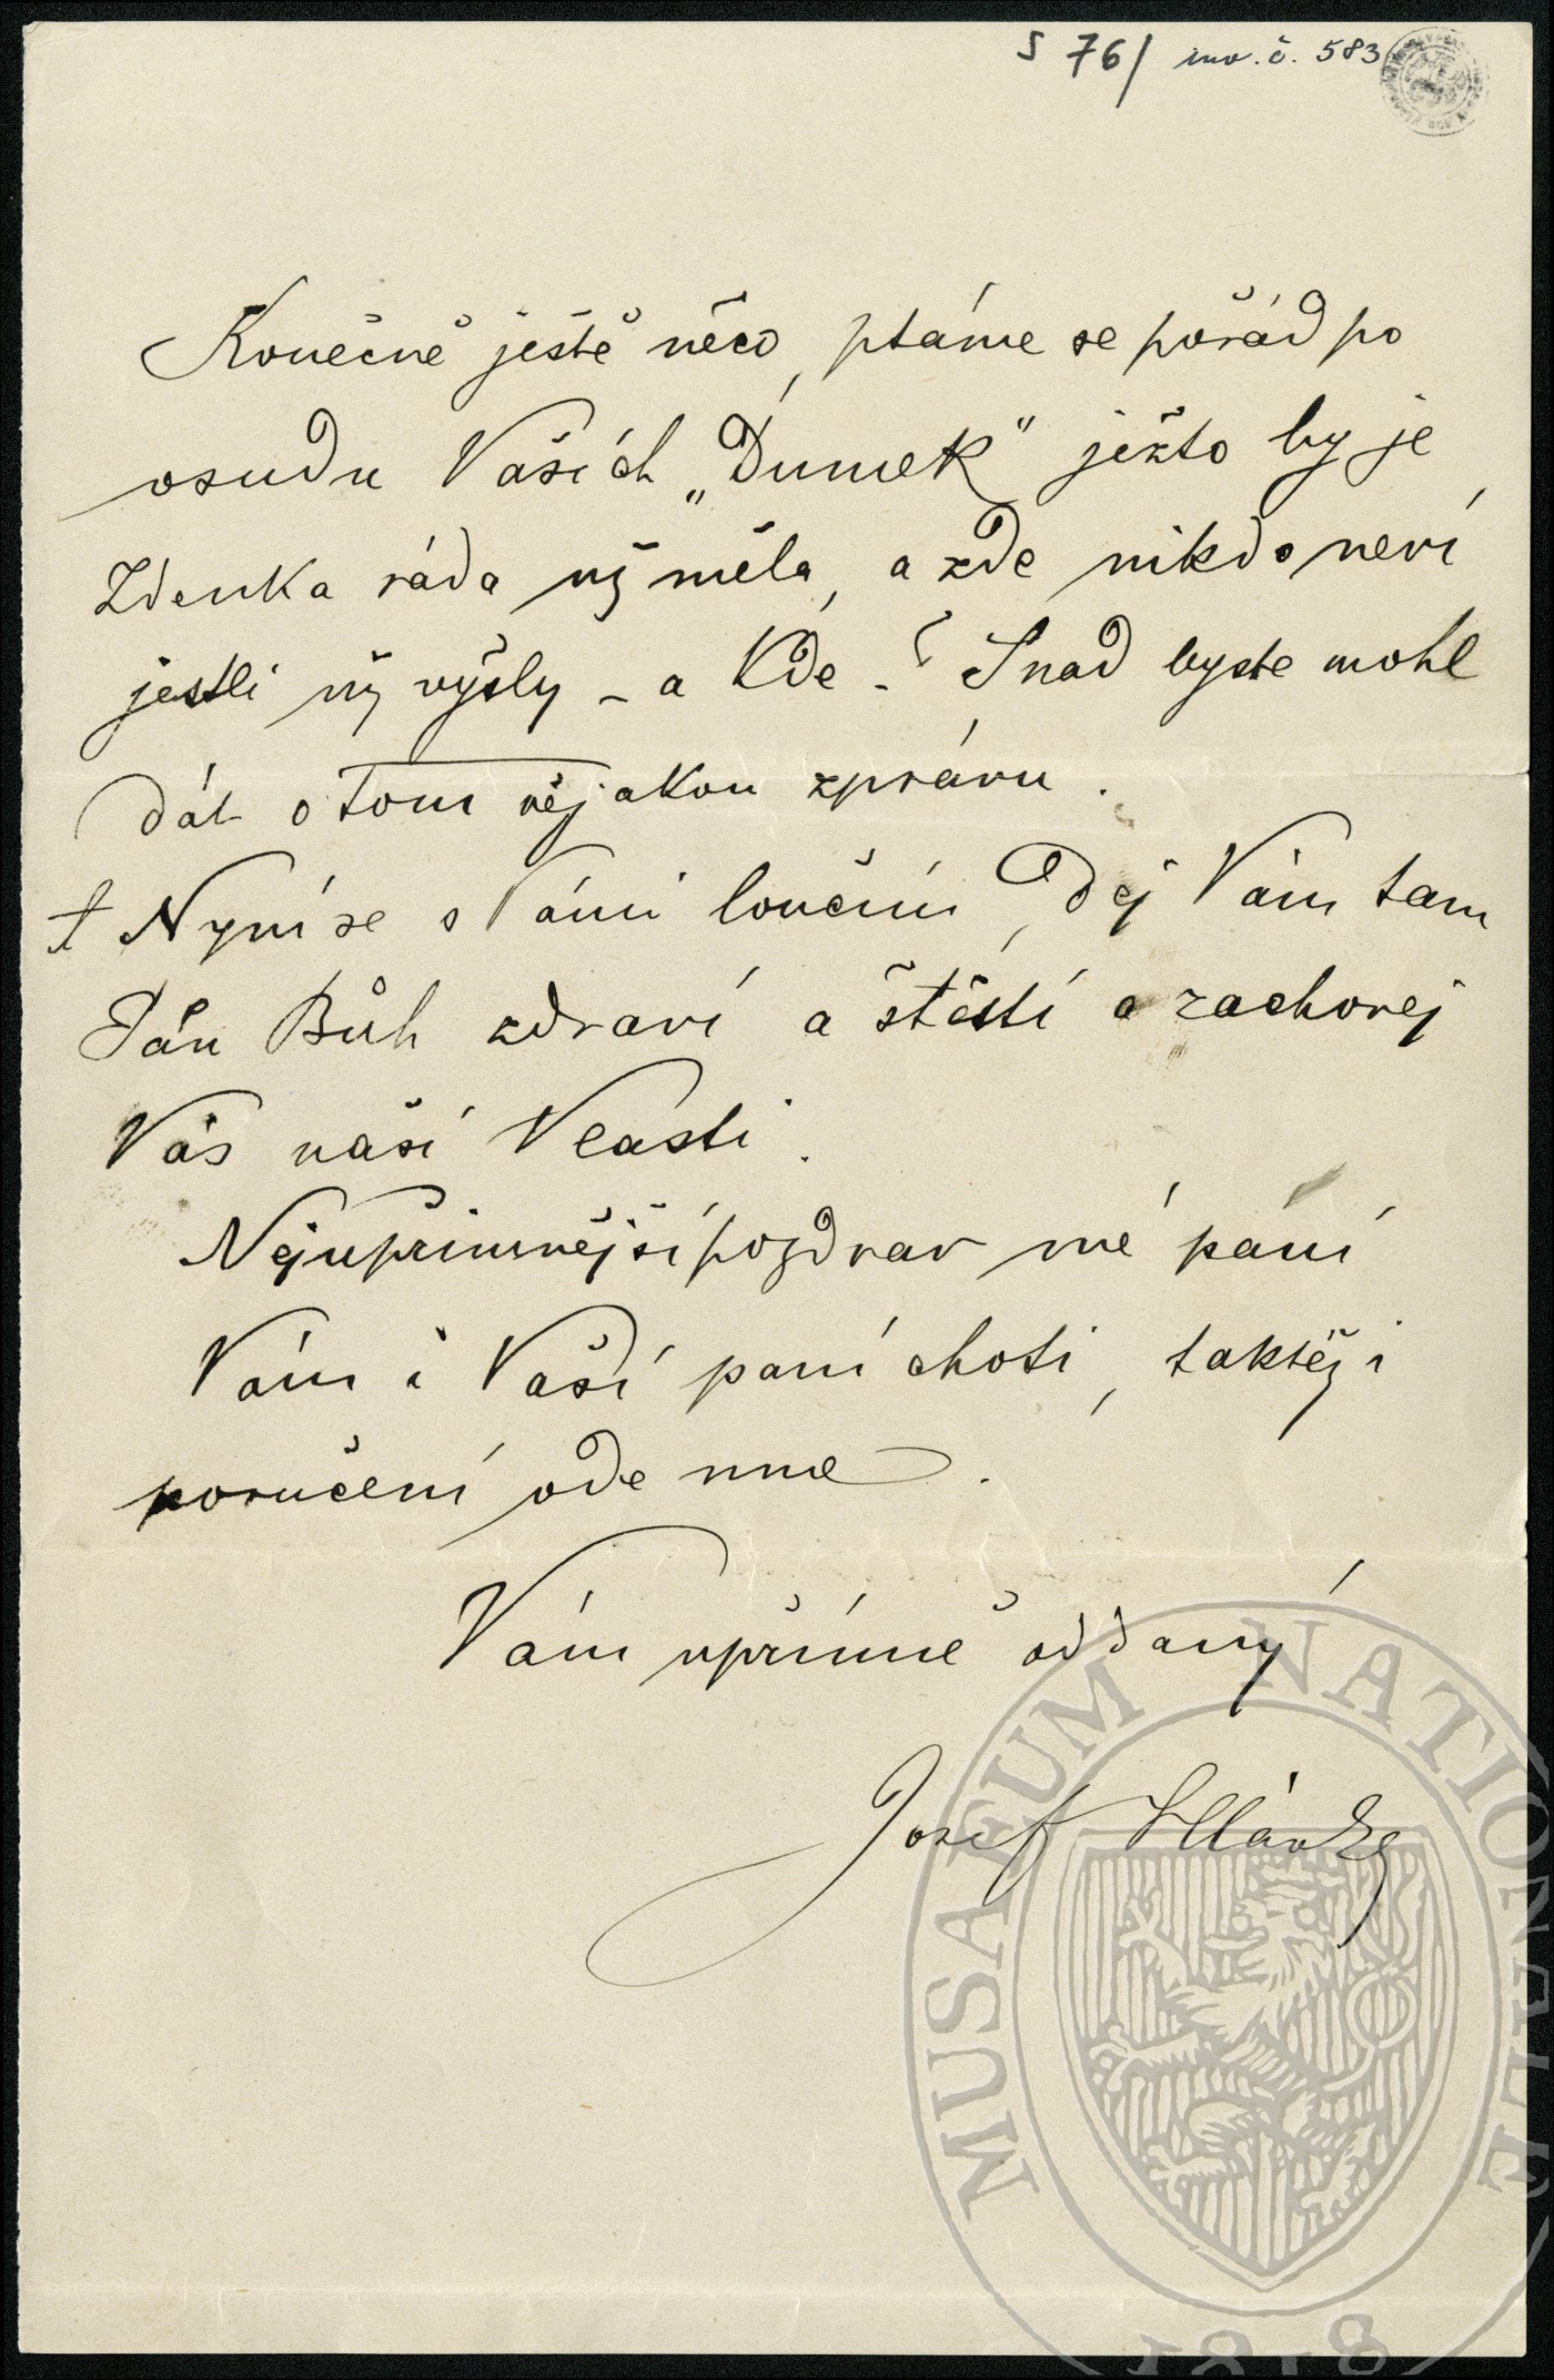 S 76/ inv. č. 583
Konečně ještě něco, ptáme se pořád po
osudu Vašich „Dumek" ježto by je
Zdenka ráda už měla, a zde nikdo neví
jestli už vyšly – a kde – ? Snad byste mohl
dát o tom nějakou zprávu.
† Nyní se s Vámi loučím, Dej Vám tam
Pán Bůh zdraví a štěstí a zachovej
Vás naší Vlasti.
Nejupřimnější pozdrav mé paní
Vám i Vaší paní choti, taktéž i
poručení ode mne.
Vám upřímně oddaný
Josef
MUSAEUM NATIONALE
1818